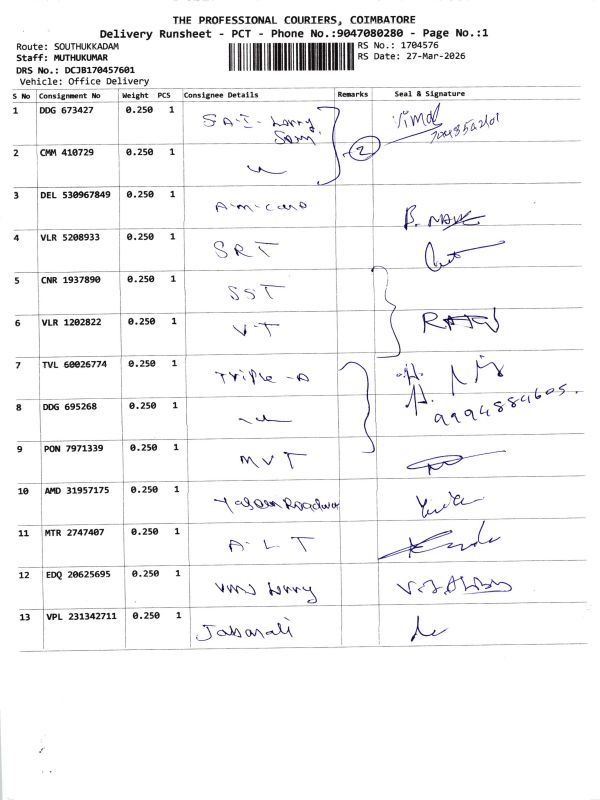 THE PROFESSIONAL COURIERS, COIMBATORE
Delivery Runsheet - PCT - Phone No.:9047080280 - Page No.:1
Route: SOUTHUKKADAM RS No.: 1704576
Staff: MUTHUKUMAR RS Date: 27-Mar-2026
DRS No.: DCJB170457601
Vehicle: Office Delivery
S No Consignment No Weight PCS Consignee Details Remarks Seal & Signature
1 DDG 673427 0.250 1 S A-I- Lorry
2 CMM 410729 0.250 1 2
3 DEL 530967849 0.250 1 A-M-
4 VLR 5208933 0.250 1 SRT
5 CNR 1937890 0.250 1 SST
6 VLR 1202822 0.250 1 V-T
7 TVL 60026774 0.250 1 Triple -A
8 DDG 695268 0.250 1
9 PON 7971339 0.250 1 MVT
10 AMD 31957175 0.250 1
11 MTR 2747407 0.250 1 A-L-T
12 EDQ 20625695 0.250 1 Lorry
13 VPL 231342711 0.250 1 Jabarali